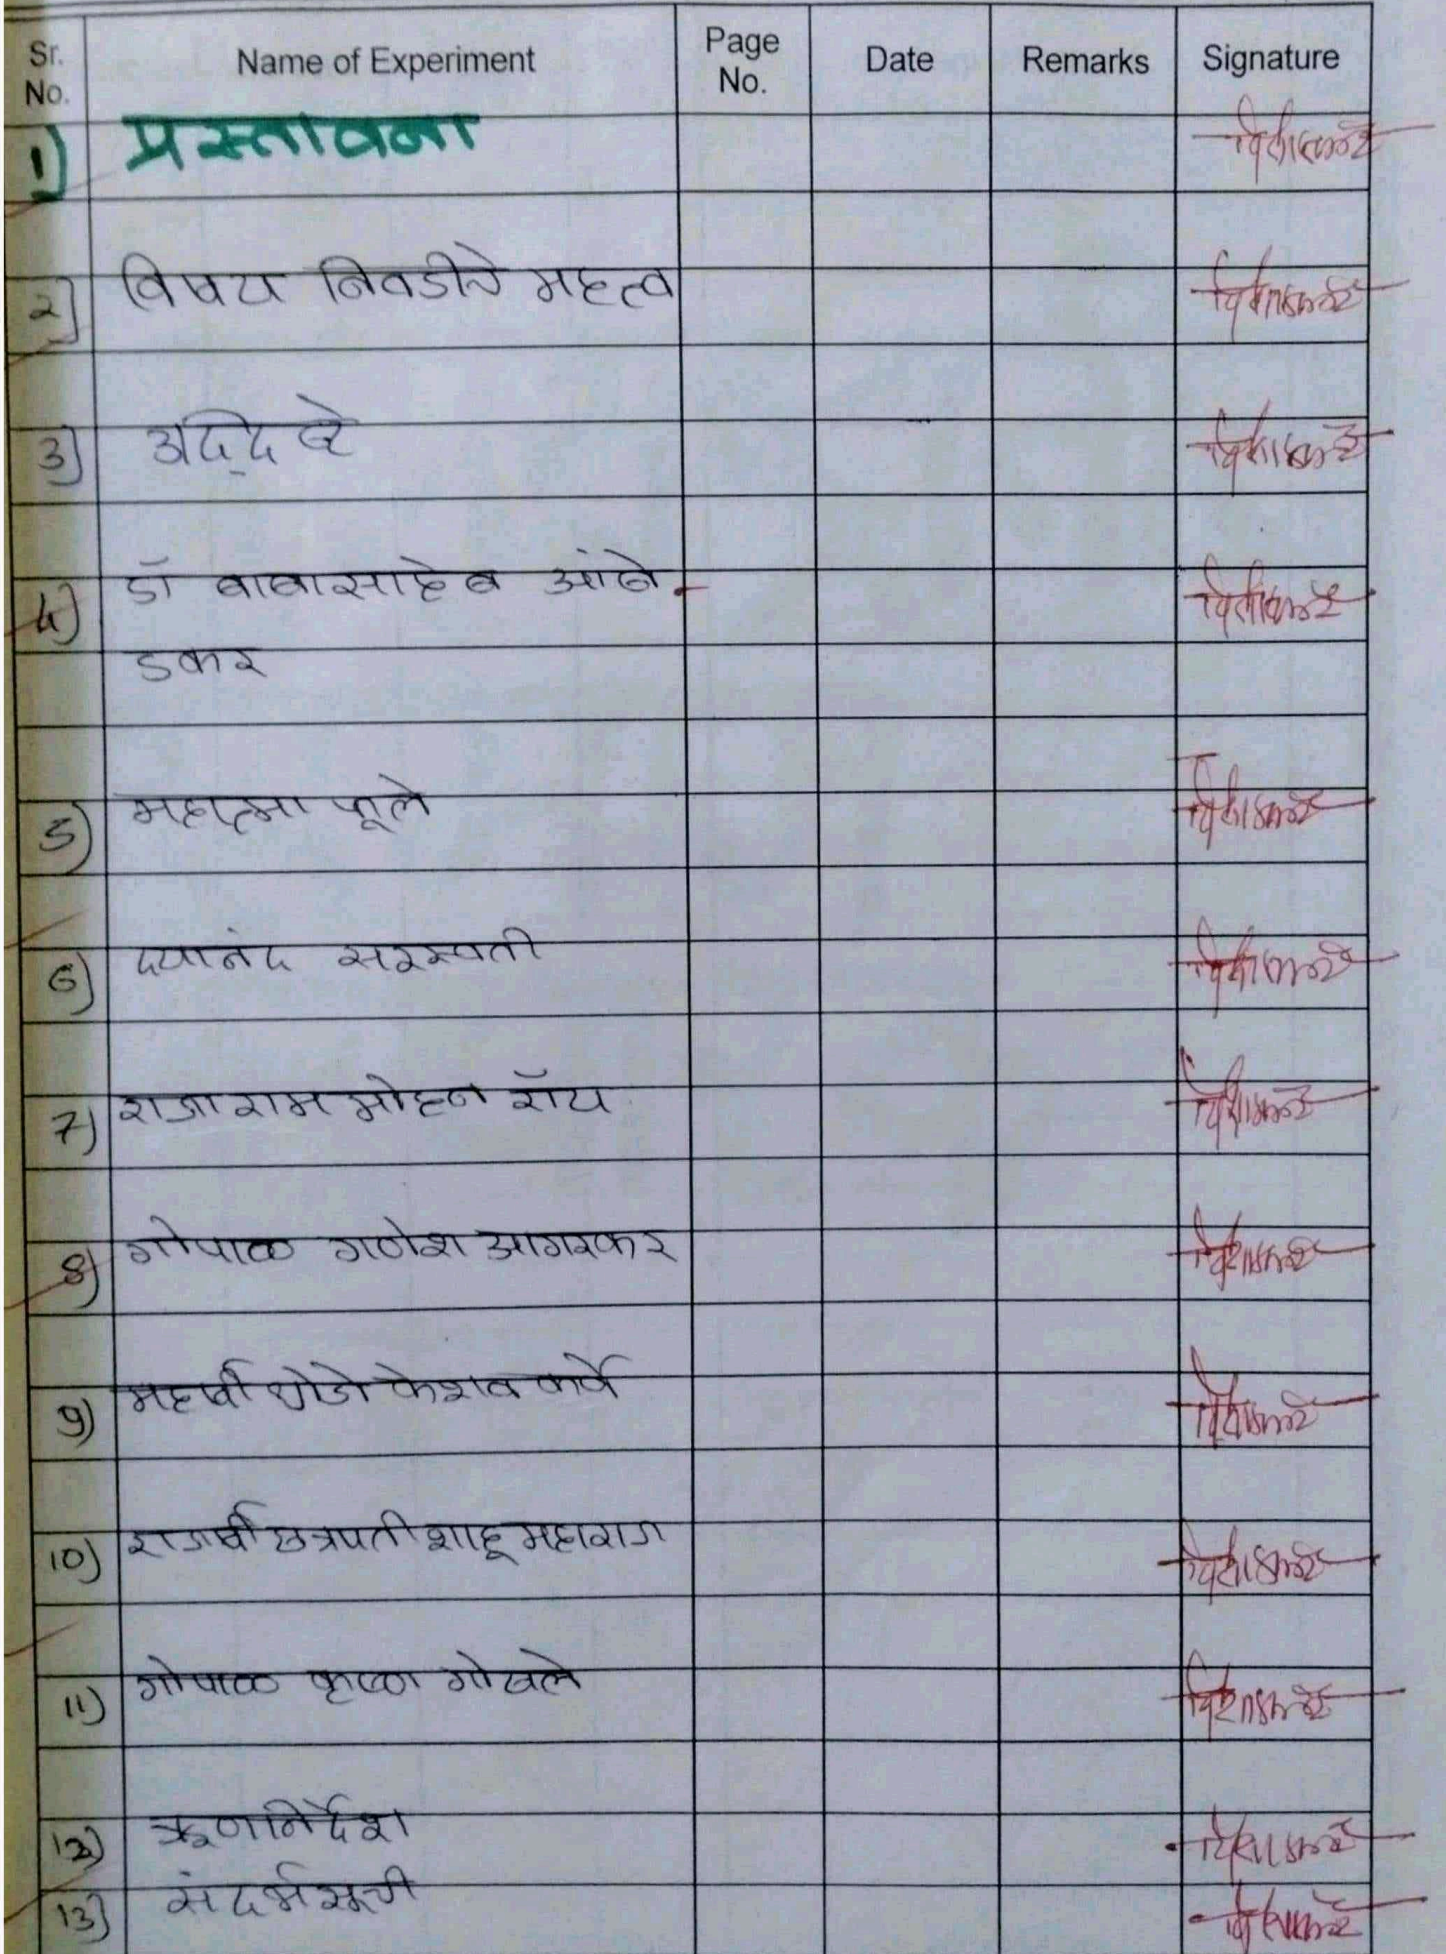 Sr. No. Name of Experiment Page No. Date Remarks Signature
1) प्रस्तावना
२) विषय निवडीचे महत्व
3)
4) डॉ बाबासाहेब आंबे-
डकर
5) महात्मा फूले
6) दयानंद सरस्वती
7) राजा राम मोहन रॉय
8) गोपाळ गणेश आगरकर
9) महर्षी धोंडो केशव कर्वे
10) राजर्षी छत्रपती शाहू महाराज
11) गोपाळ कृष्ण गोखले
12) ऋणनिर्देश
13) संदर्भसूची